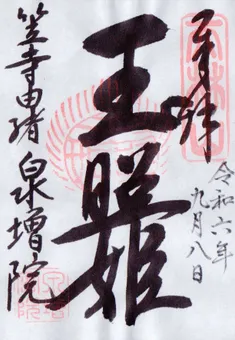 奉拝
令和六年
九月八日
玉照姫
笠寺由緒 泉増院